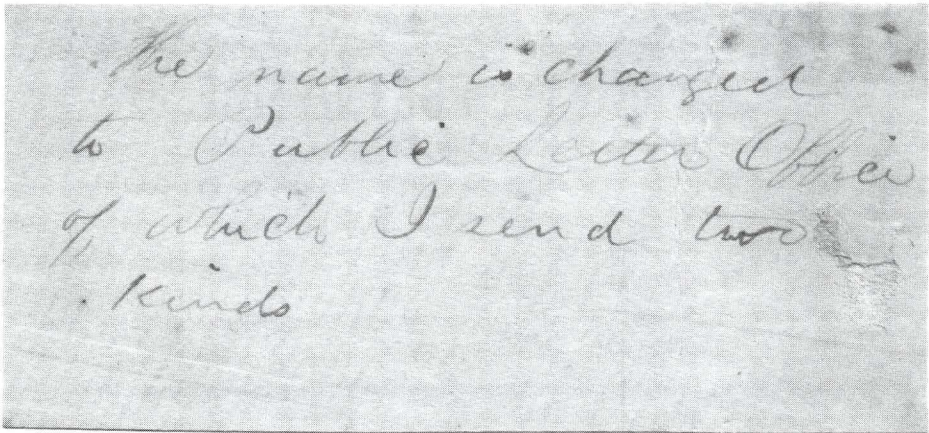 The name is changed
to Public Letter Office
of which I send two
Kinds